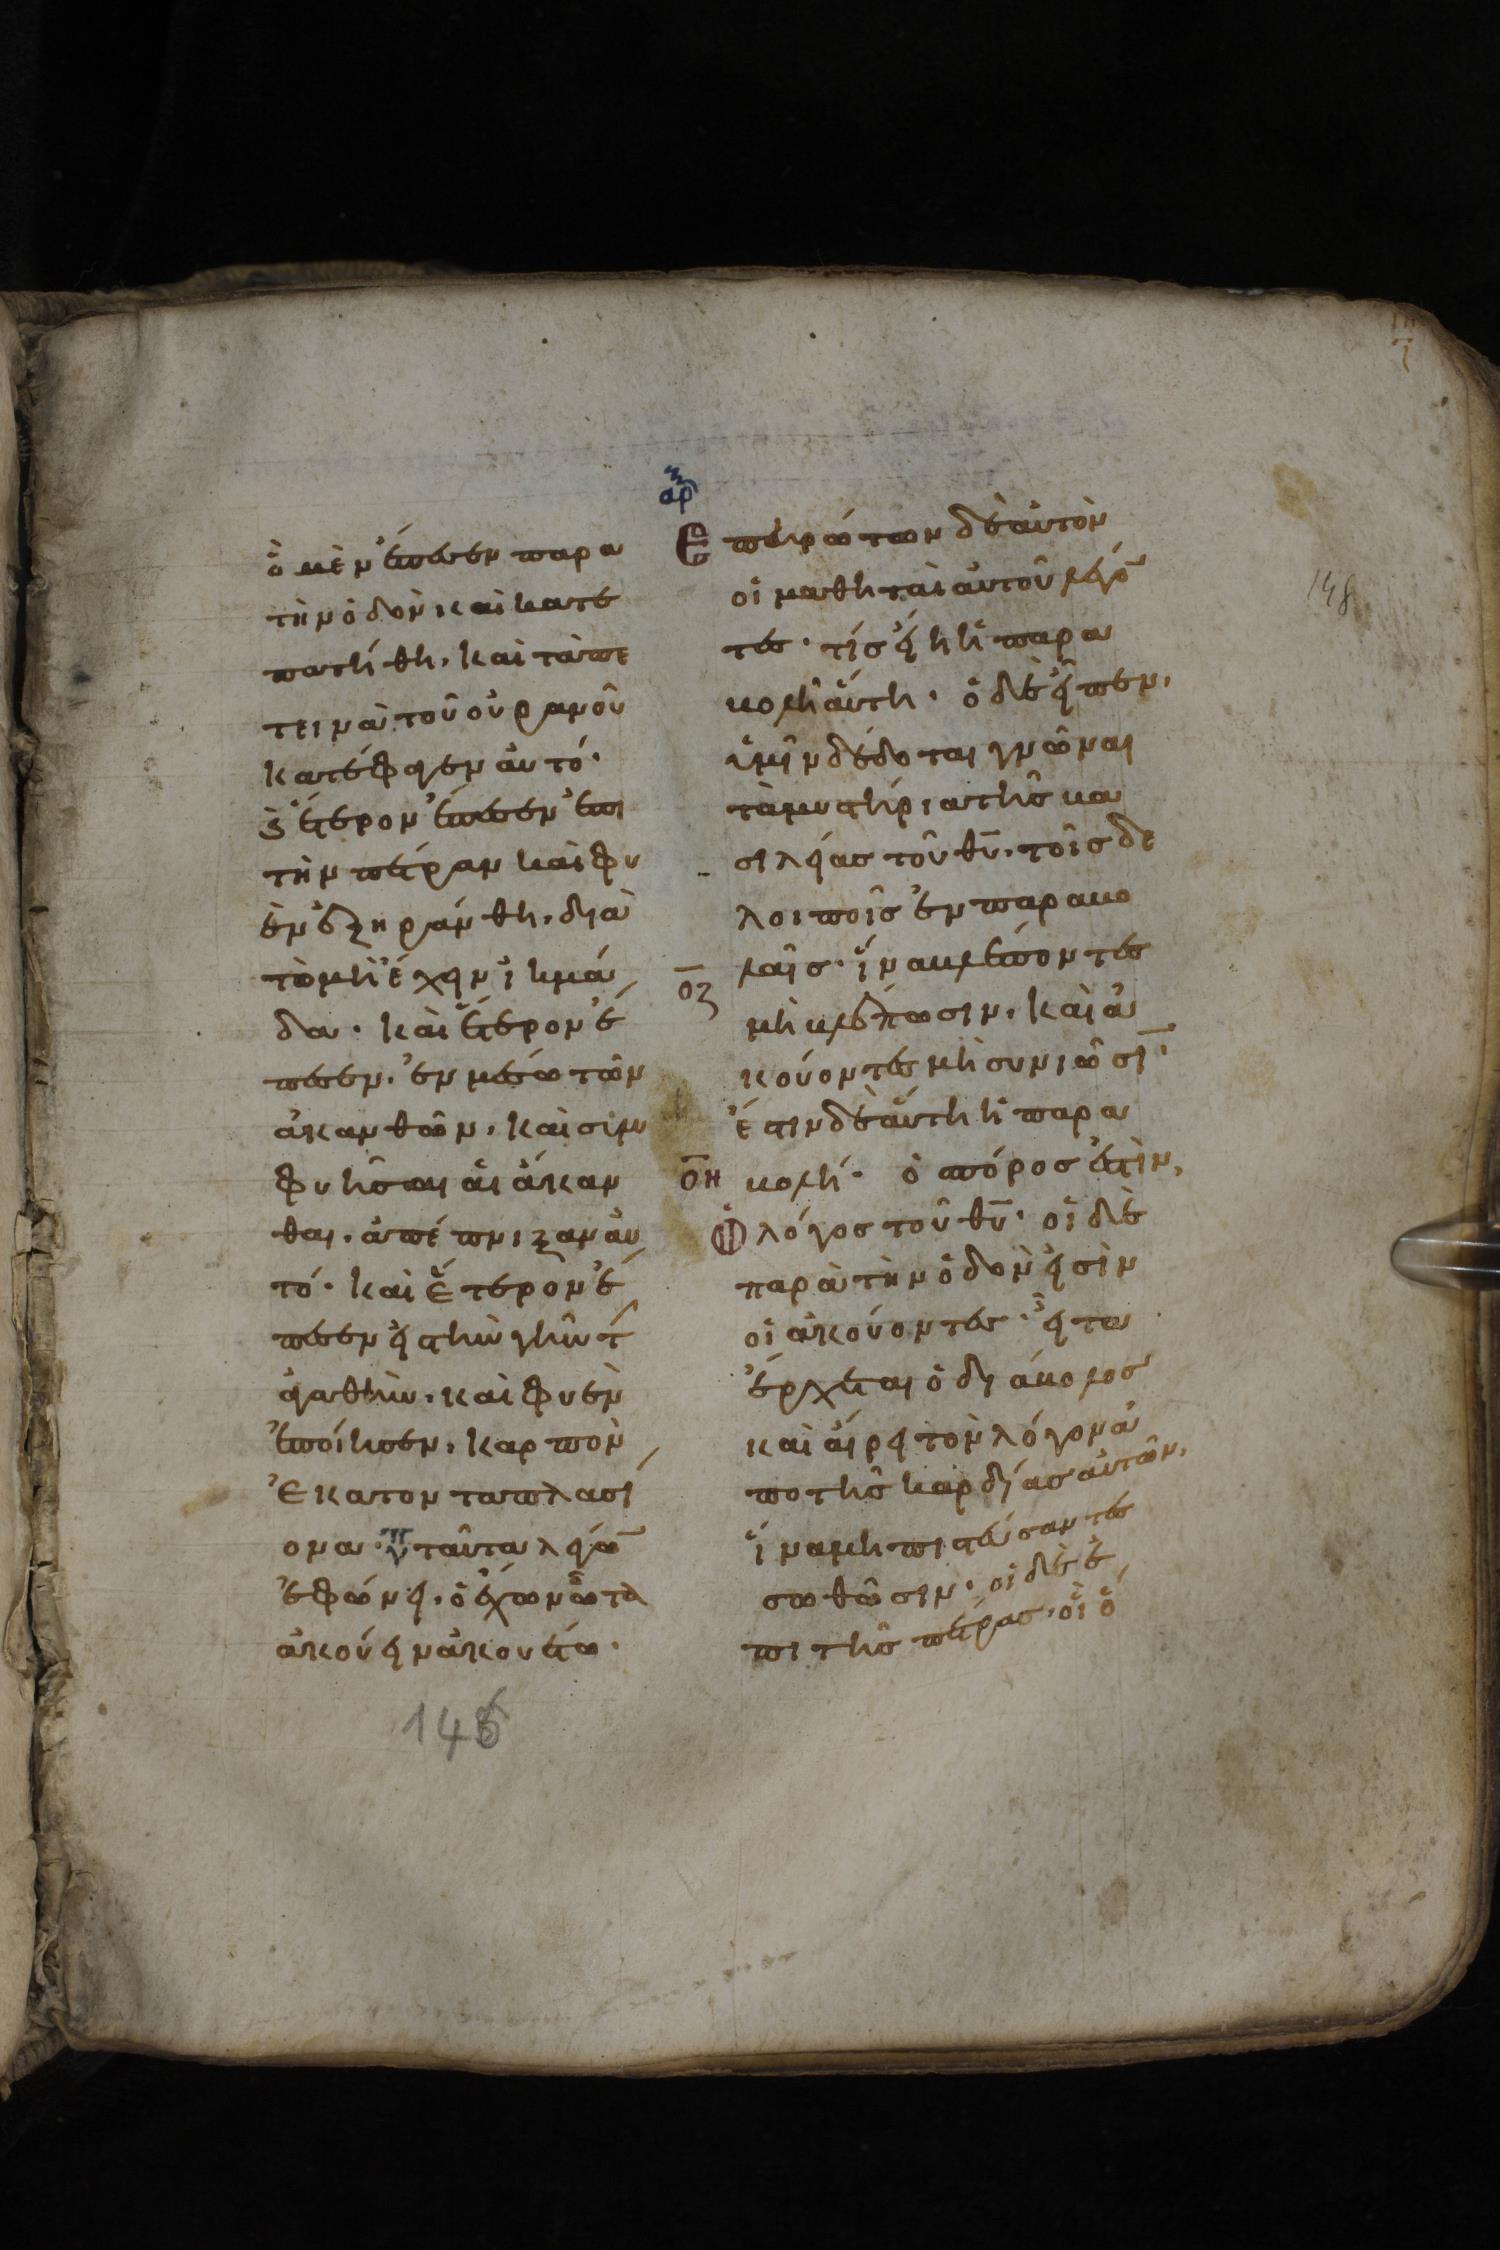 ὃ μὲν ἔπεσεν παρα
τὴν ὁδὸν καὶ κατε
πατήθη, καὶ τὰ πε
τεινὰ τοῦ οὐρανοῦ
κατέφαγεν αὐτό·
ϛ ἕτερον ἔπεσεν ἐπι
τὴν πέτραν καὶ φυ
ὲν ἐξηράνθη, διὰ
τὸ μὴ ἔχειν ἰκμά
δα· καὶ ἕτερον ἔ
πεσεν, ἐν μέσω τῶν
ἀκανθῶν, καὶ συμ
φυῆσαι αἱ ἄκαν
θαι, ἀπέπνιξαν αὐ
τό· καὶ ἕτερον ἔ
πεσεν εἰς τὴν γῆν τ
ἀγαθὴν, καὶ φυὲν
ἐποίησεν, καρπὸν
ἑκατονταπλασί
ονα· ταῦτα λέγω
ἐφώνει, ὁ ἔχων ὦτα
ἀκούειν ἀκουέτω·
145
αρ
Ἐπειρώτων δὲ αὐτὸν
οἱ μαθηταὶ αὐτοῦ λέγο
τες· τίς εἴη ἡ παρα
βολὴ αὕτη· ὁ δὲ εἶπεν,
ὑμῖν δέδοται γνῶναι
τὰ μυστήρια τῆς βα
σιλείας τοῦ θυ, τοῖς δὲ
λοιποῖς ἐν παραβο
οζ λαῖς· ἵνα βλέποντες
μὴ βλέπωσιν, καὶ ἀ
κούοντες μὴ συνιῶσι·
ἔστιν δὲ αὕτη ἡ παρα
οη βολή· ὁ σπόρος ἐστὶν,
ὁ λόγος τοῦ θυ· οἱ δὲ
παρὰ τὴν ὁδὸν εἰσὶν
οἱ ἀκούοντες· εἶτα
ἔρχεται ὁ διάβολος
καὶ αἴρει τὸν λόγον ἀ
πο τῆς καρδίας αὐτῶν,
ἵνα μὴ πιστεύσαντες
σωθῶσιν· οἱ δὲ ἐ
πι τῆς πέτρας, οἳ ὅ
148